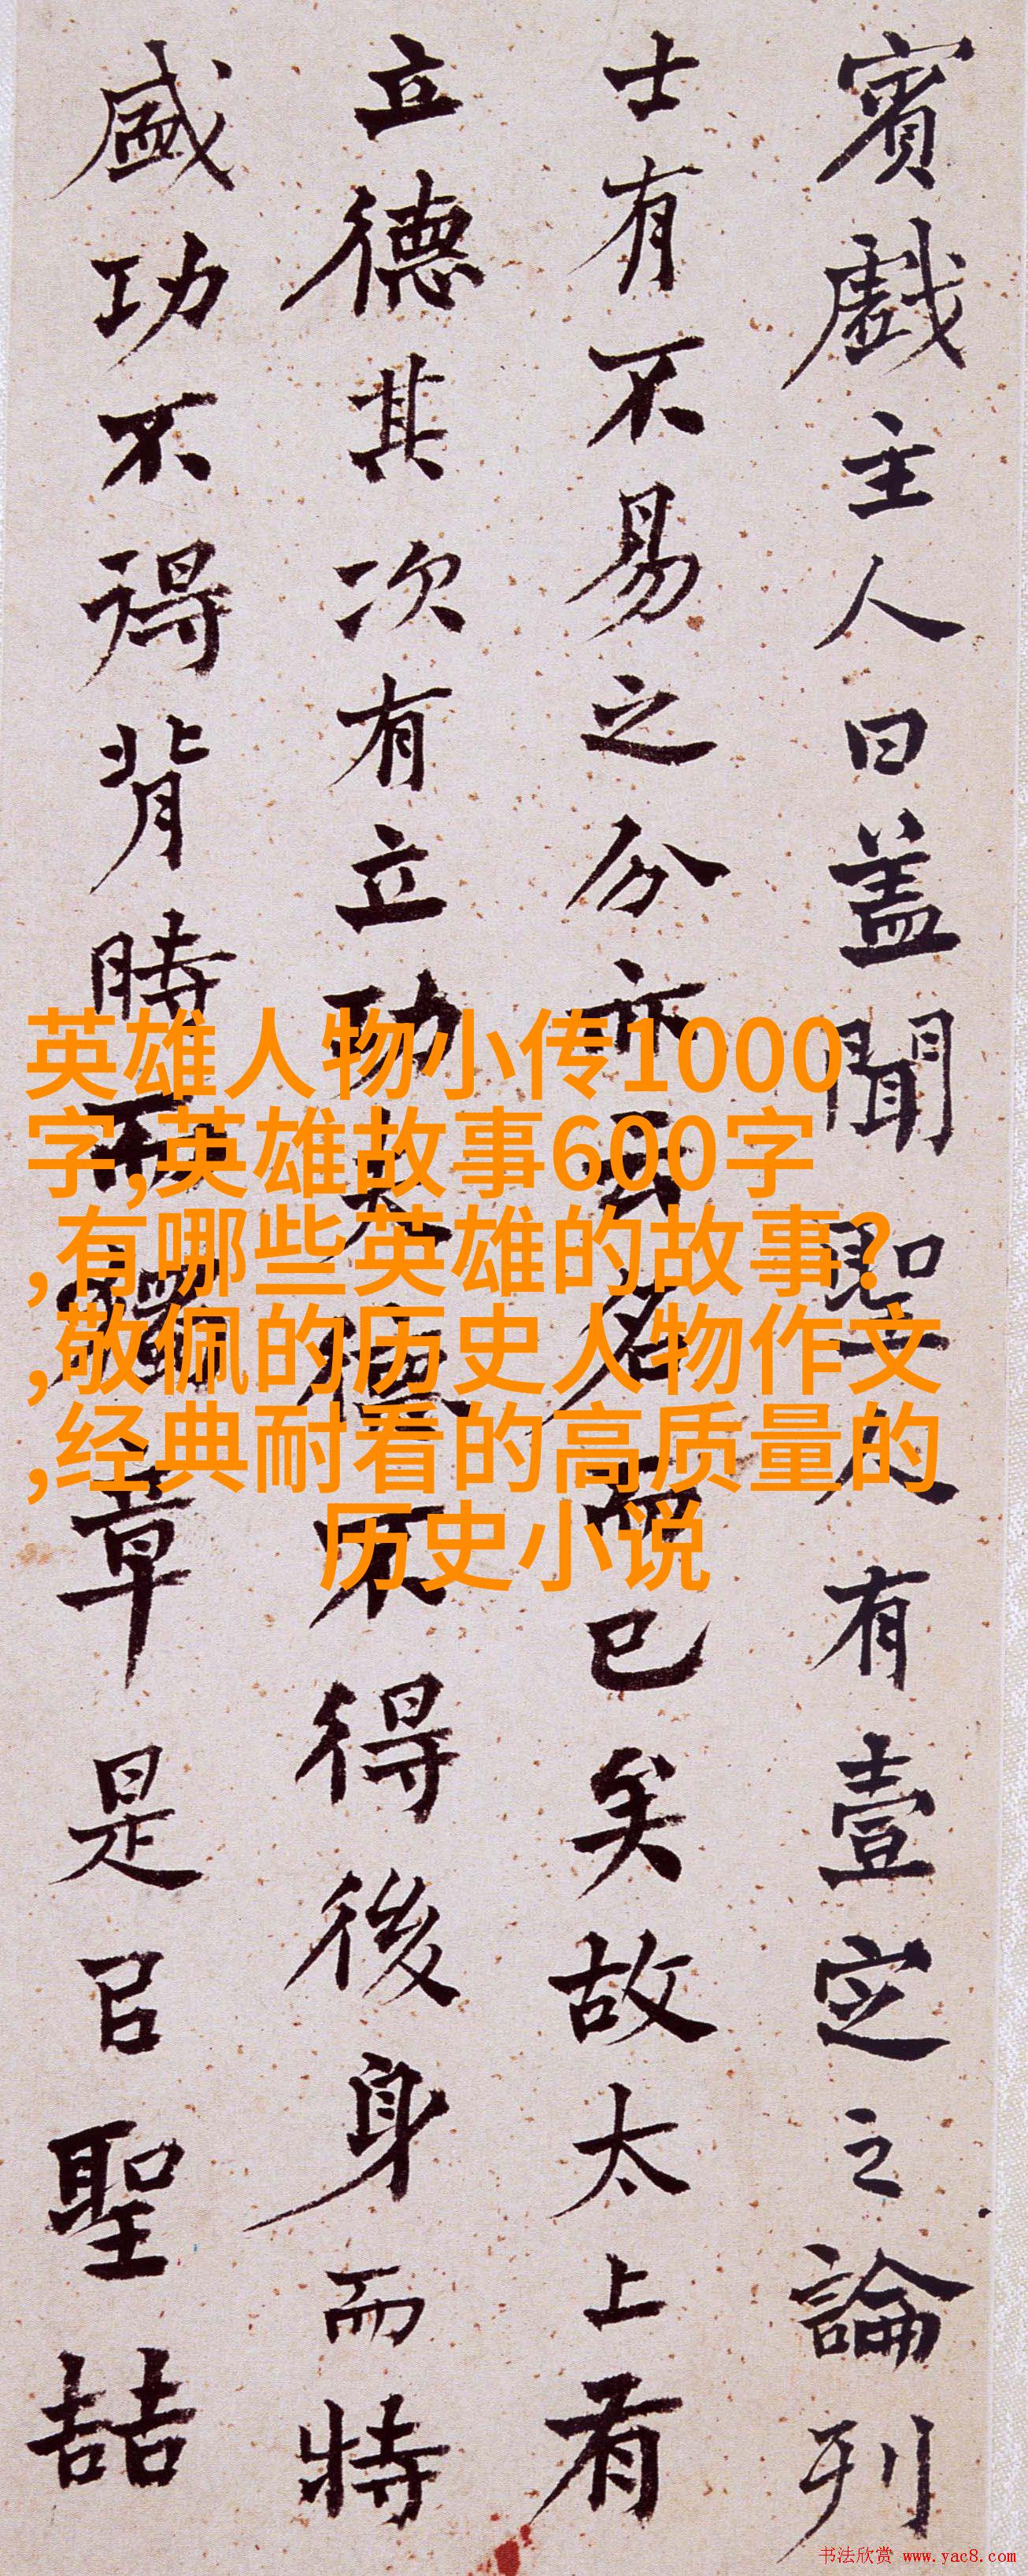 賓戲主人曰蓋聞聖人有壹定之論列
士有不易之分亦云名而已矣故太上有
立德其次有立功夫德不得後身而特
盛功不得背時而獨章是㠯聖喆
英雄人物小传1000
字,英雄故事600字
,有哪些英雄的故事?
,敬佩的历史人物作文
,经典耐看的高质量的
历史小说
书法欣赏 www.yac8.com